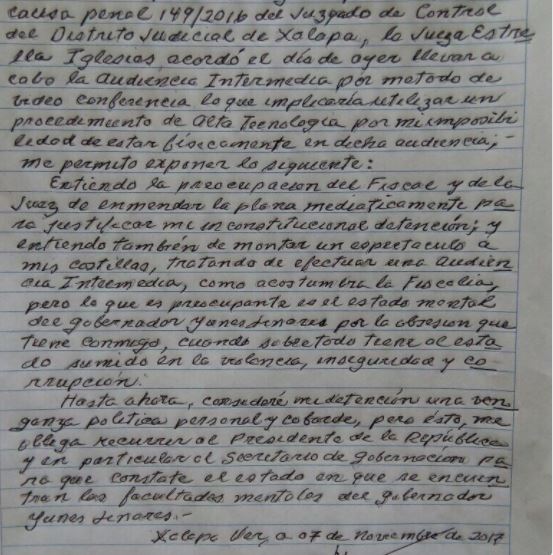 causa penal 149/2016 del Juzgado de Control
del Distrito Judicial de Xalapa, la Jueza Estre
lla Iglesias acordó el día de ayer llevar a
cabo la Audiencia Intermedia por metodo de
video conferencia lo que implicaría utilizar un
procedimiento de alta Tecnología por mi imposibi
lidad de estar físicamente en dicha audiencia; -
me permito exponer lo siguiente:
Entiendo la preocupacion del Fiscal y de la
Juez de enmendar la plana mediaticamente pa
ra justificar mi inconstitucional detención; y
entiendo también de montar un espectaculo a
mis costillas, tratando de efectuar una audien
cia Intermedia, como acostumbra la Fiscalia,
pero lo que es preocupante es el estado mental
del gobernador Yunes Linares por la obsesion que
tiene conmigo, cuando sobretodo tiene al esta
do sumido en la violencia, inseguridad y co
rrupción.
Hasta ahora, consideré mi detención una ven
ganza politica personal y cobarde, pero ésto, me
obliga recurrir al Presidente de la República
y en particular al Secretario de gobernación pa
ra que constate el estado en que se encuen
tran las facultades mentales del gobernador
Yunes Linares.-
Xalapa Ver, a 07 de Noviembre de 2017